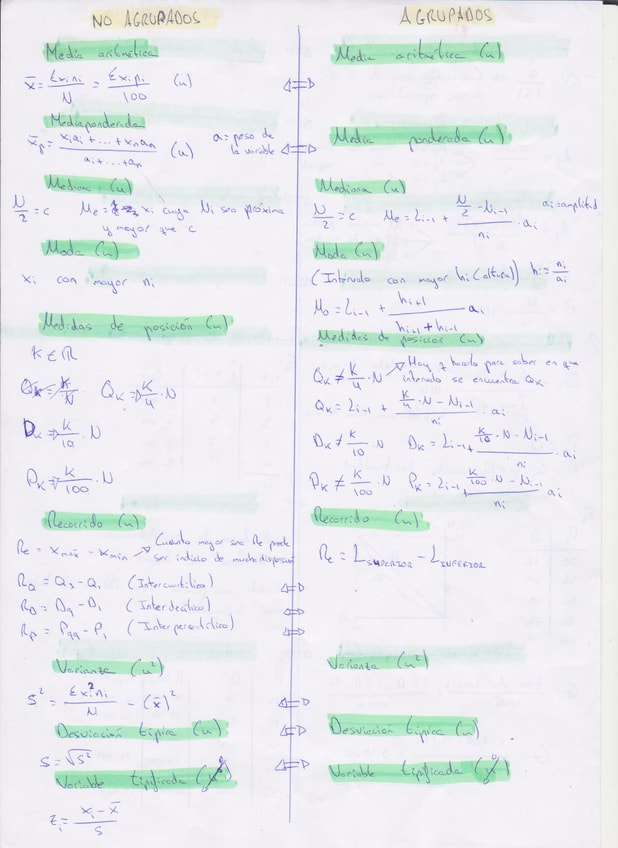 NO AGRUPADOS
Media aritmética
x̄ = Σxini / N = Σxipi / 100 (u)
Media ponderada
x̄p = x1a1 + ... + xnan / a1 + ... + an (u) a = peso de la variable
Mediana (u)
N/2 = c Me = xi cuya Ni sea próxima
y mayor que c
Moda (u)
xi con mayor ni
Medidas de posición (u)
K ∈ ℝ
QK = K/N QK ⇒ K/4 · N
DK ⇒ K/10 · N
PK ⇒ K/100 · N
Recorrido (u)
Re = xmáx - xmín → Cuanto mayor sea Re puede
ser indicio de mucha dispersión
RQ = Q3 - Q1 (Intercuartílico)
RD = D9 - D1 (Interdecílico)
RP = P99 - P1 (Interpercentílico)
Varianza (u²)
S² = Σxi²ni / N - (x̄)²
Desviación típica (u)
S = √S²
Variable tipificada
zi = xi - x̄ / S
AGRUPADOS
Media aritmética (u)
Media ponderada (u)
Mediana (u)
N/2 = c Me = Li-1 + N/2 - Ni-1 / ni · ai ai = amplitud
Moda (u)
(Intervalo con mayor hi (altura)) hi = ni/ai
Mo = Li-1 + hi+1 / hi+1 + hi-1 ai
Medidas de posición (u)
QK ≠ K/4 · N → Hay q hacerlo para saber en que
intervalo se encuentra QK
QK = Li-1 + K/4 · N - Ni-1 / ni · ai
DK ≠ K/10 · N DK = Li-1 + K/10 · N - Ni-1 / ni · ai
PK ≠ K/100 · N PK = Li-1 + K/100 · N - Ni-1 / ni · ai
Recorrido (u)
Re = LSUPERIOR - LINFERIOR
Varianza (u²)
Desviación típica (u)
Variable tipificada